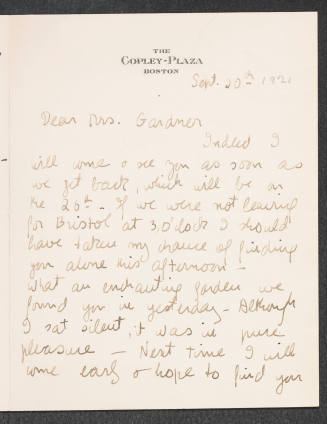 THE
COPLEY-PLAZA
BOSTON
Sept. 20th 1921
Dear Mrs. Gardner
Indeed I
will come & see you as soon as
we get back, which will be on
the 26th - If we were not leaving
for Bristol at 3 o'clock I should
have taken my chance of finding
you alone this afternoon -
What an enchanting garden we
found you in yesterday - Although
I sat silent, it was in pure
pleasure - Next time I will
come early & hope to find you